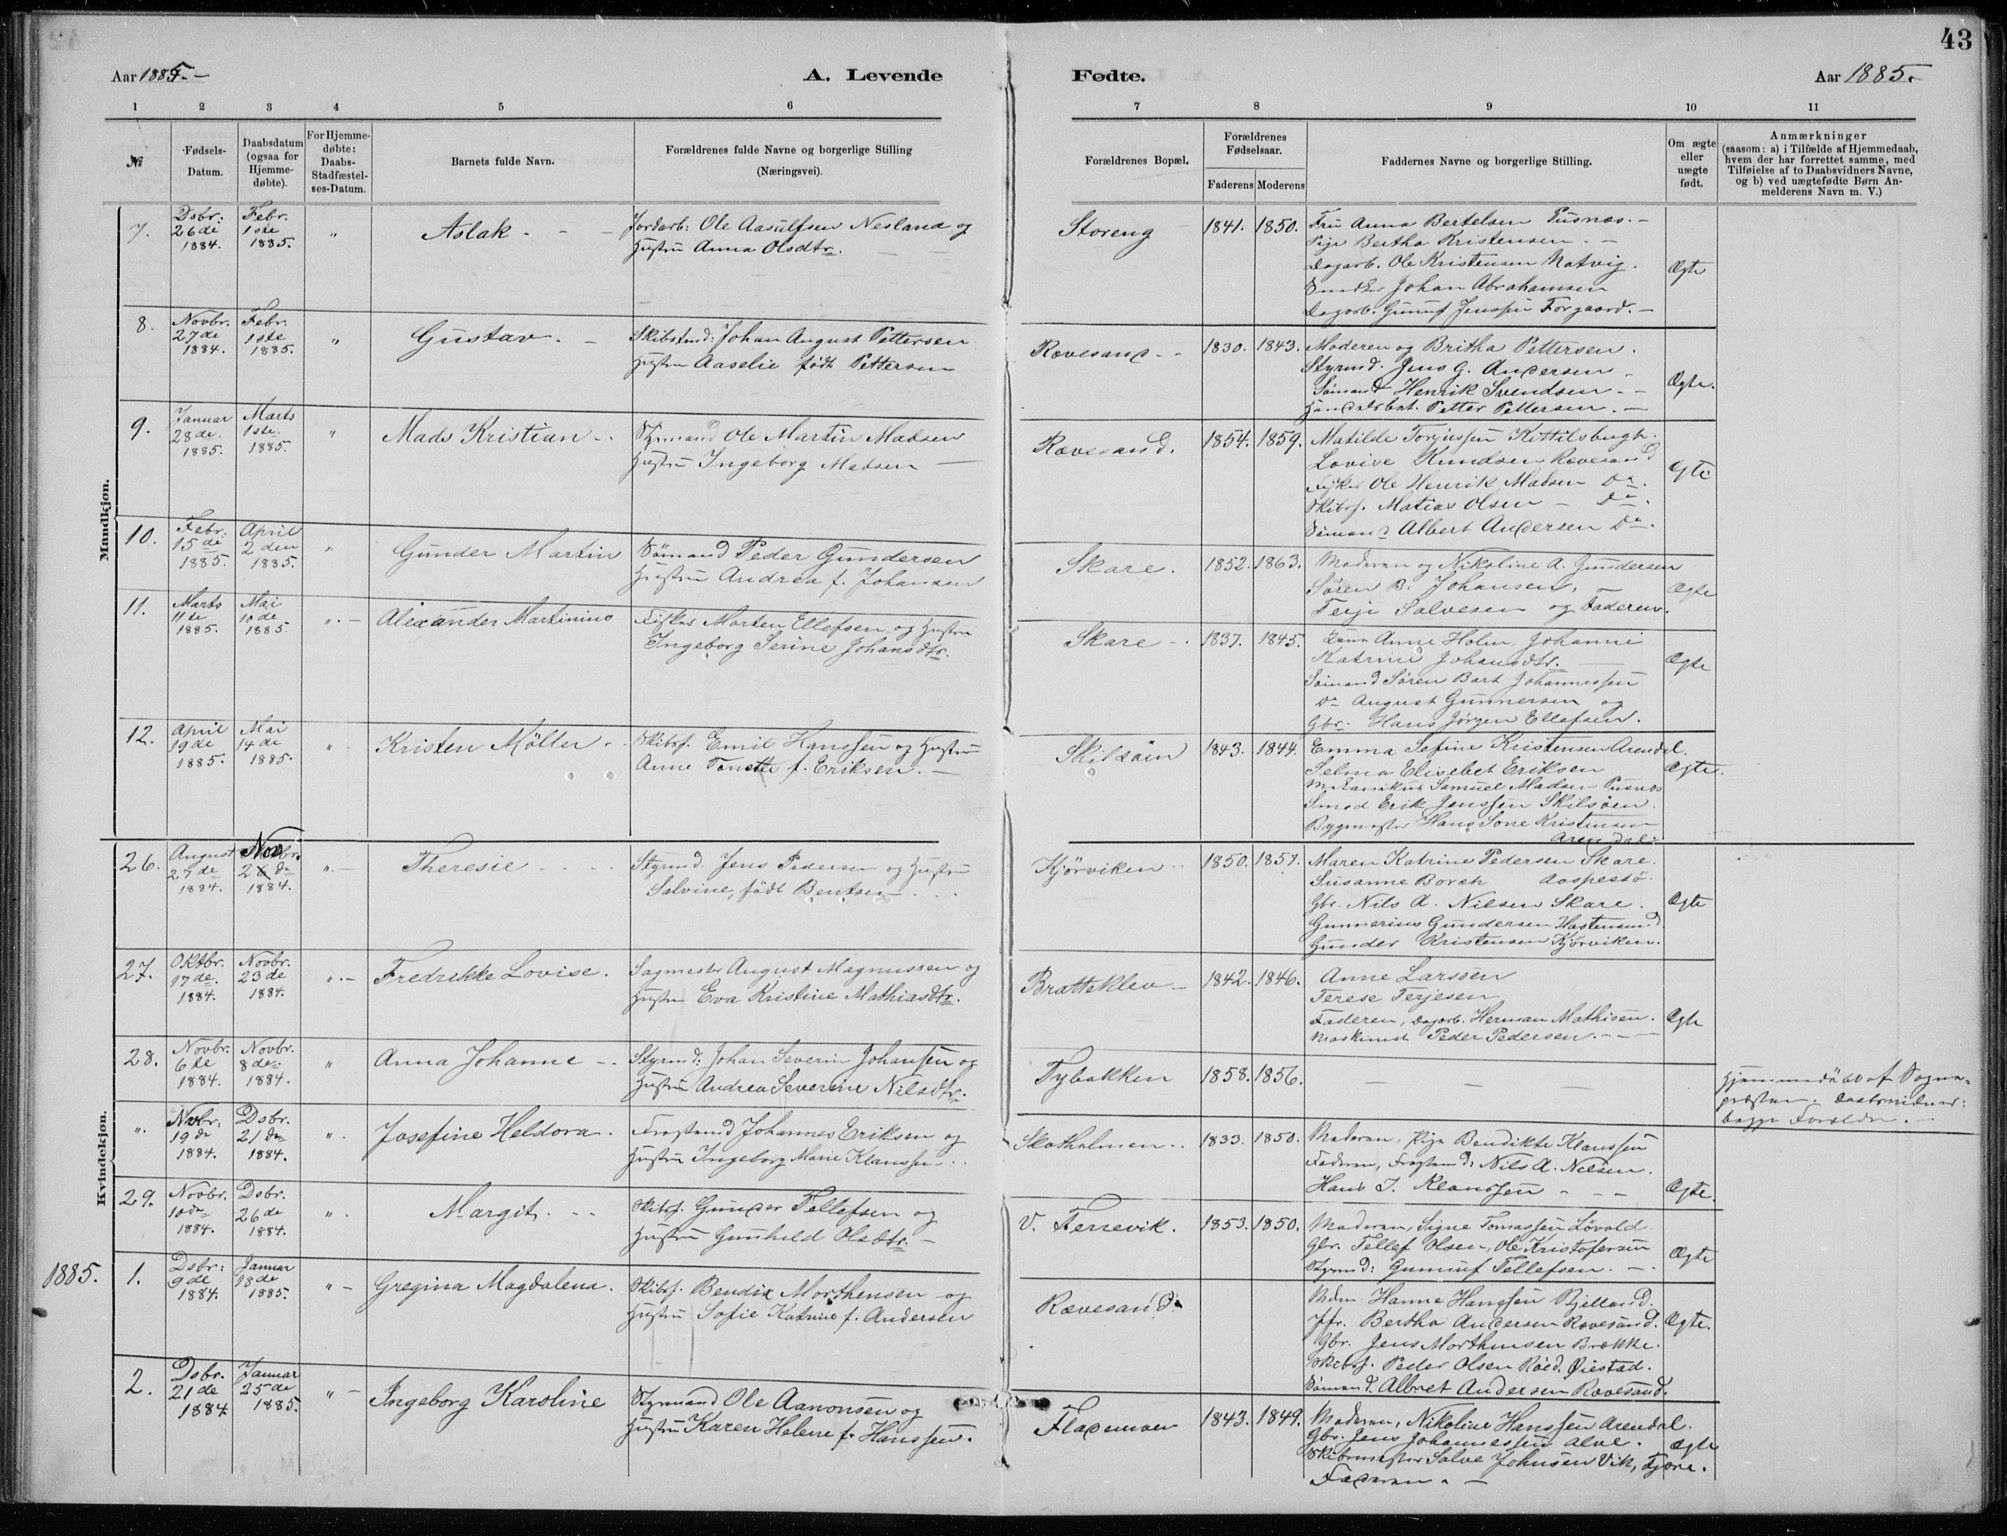 43
Aar 1885.-
A. Levende
Fødte.
Aar 1885.-
1 2 3 4 5 6 7 8 9 10 11
№
Fødsels-Datum.
Daabsdatum (ogsaa for Hjemme-døbte).
For Hjemme-døbte: Daabs-Stadfæstel-ses-Datum.
Barnets fulde Navn.
Forældrenes fulde Navne og borgerlige Stilling (Næringsvei).
Forældrenes Bopæl.
Forældrenes Fødselsaar.
Faderens Moderens
Faddernes Navne og borgerlige Stilling.
Om ægte eller uægte født.
Anmærkninger
(saasom: a) i Tilfælde af Hjemmedaab,
hvem der har forrettet samme, med
Tilføielse af to Daabsvidners Navne,
og b) ved uægtefødte Børn An-
melderens Navn m. V.)
Mandkjøn.
7. Dsbr: 26de 1884. Febr. 1ste 1885. " Aslak - - -
Jordarb: Ole Aasulfsen Nesland og
Hustru Anna Olsdtr.
Storeng 1841. 1850.
Fru Anna Bertelsen Pusnæs. -
Pige Bertha Kristensen - -
Dagarb. Ole Kristensen Natvig.
Johan Abrahamsen
Dagarb. Gunuf Jenssen Torgaard. -
Ægte
8. Novbr. 27de 1884. Febr. 1ste 1885. " Gustav. -
Skibstmd: Johan August Pettersen
Hustru Aaselie født Pettersen
Rævesand - - 1830. 1843.
Moderen og Britha Pettersen.
Styrmd. Jens G. Andersen.
Sømand Henrik Svendsen. -
Petter Pettersen. -
Ægte.
9. Januar 28de. 1885. Marts 1ste. 1885. " Mads Kristian - -
Styrmand Ole Martin Madsen
Hustru Ingeborg Madsen -
Rævesand. 1854. 1859.
Matilde Torjussen Kittilsbugt.
Lovise Knudsen Rævesand
Ole Henrik Madsen Do.
Skibsf. Matias Olsen - Do.
Sømand Albert Andersen Do.
Ægte
10. Febr: 15de 1885. April 2den 1885. " Gunder Martin
Sømand Peder Gundersen
Hustru Andrea f. Johansen
Skare. 1852. 1863.
Moderen og Nikoline A. Gundersen
Søren B. Johansen,
Terje Salvesen og Faderen.
Ægte
11. Marts 11te 1885. Mai 10de 1885. " - Alexander Martinius
Fisker Morten Ellefsen og Hustru
Ingeborg Serine Johansdtr.
Skare - - 1837. 1845.
Anne Holm, Johanne
Katrine Johansdtr. -
Sømand Søren Bart Johannessen
Do August Gunnersen og
Gbr. Hans Jørgen Ellefsen.
Ægte
12. April 19de 1885. Mai 14de 1885. " Kristen Møller - -
Skibsf. Emil Hanssen og Hustru
Anne Tonette f. Eriksen. -
Skilsøen 1843. 1844.
Emma Sofine Kristensen Arendal.
Selma Elisebet Eriksen
Mekanikus Samuel Madsen Pusnæs
Smed Erik Jenssen Skilsøen.
Bygmester Hans Tone Kristensen
Arendal.
Ægte.
Kvindekjøn.
26. August 27de 1884. Novbr. 1884. " - Theresie - - - -
Styrmd. Jens Pedersen og Hustru
Salvine, født Bentsen - . .
Kjørviken - 1850. 1857.
Maren Katrine Pedersen Skare.
Susanne Borch Aaspestø.
Gbr. Nils A. Nilsen Skare.
Gunnerius Gundersen Hastensund
Gunder Kristensen Kjørviken.
Ægte
27. Oktbr. 17de. 1884. Novbr. 23de 1884. " - Fredrikke Lovise.
Sagmester August Magnussen og
Hustru Eva Kristine Mathiasdtr.
Bratteklev - 1842. 1846.
Anne Larssen
Terese Terjesen
Faderen, Dagarb. Herman Mathisen.
Maskinist Peder Pedersen. - -
Ægte
28. Novbr. 6te 1884. Novbr. 8de 1884. " Anna Johanne - -
Styrmd: Johan Severin Johansen og
Hustru Andrea Severine Nilsdtr.
Tybakken 1858. 1856.
- -
Hjemmedøbt af Sogne-
præsten. Daabsvidner:
begge Forældre. -
" Novbr: 19de 1884. Dsbr. 21de 1884. " Josefine Heldora.
Johannes Eriksen og
Hustru Ingeborg Marie Klaussen -
Skotholmen. . 1833. 1850.
Moderen, Pige Bendikte Klaussen
Faderen, Nils A. Nilsen.
Hans J. Klaussen - - -
Ægte.
29. Novbr. 10de 1884. Dsbr. 26de 1884. " Margit. - -
Skibsf. Gunder Tellefsen og
Hustru Gunhild Olsdtr. -
V. Terrevik. 1853. 1850.
Moderen, Signe Tomassen Løvold
Gbr. Tellef Olsen, Ole Kristofersen
Styrmd: Gunuf Tellefsen. -
Ægte
1885. 1. Dsbr: 9de 1884. Januar 18de 1885. " - Gregina Magdalena.
Skibsf. Bendix Morthensen og
Hustru Sofie Katrine f. Andersen
Rævesand.
Hanne Hanssen Bjelland.
Jfr. Bertha Andersen Rævesand.
Gbr. Jens Morthensen Brække.
Skibsf. Peder Olsen Røed, Øiestad.
Sømand. Albret Andersen Rævesand.
Ægte.
2. Dsbr. 21de 1884. Januar 25de 1885. " - Ingeborg Karoline
Styrmand Ole Aanonsen og
Hustru Karen Helene f. Hanssen.
Flademoen 1843. 1849.
Moderen, Nikoline Hanssen Arendal.
Gbr. Jens Johannessen Alve.
Skibsmester Salve Johnsen Vik, Fjære.
Faderen - -
Ægte